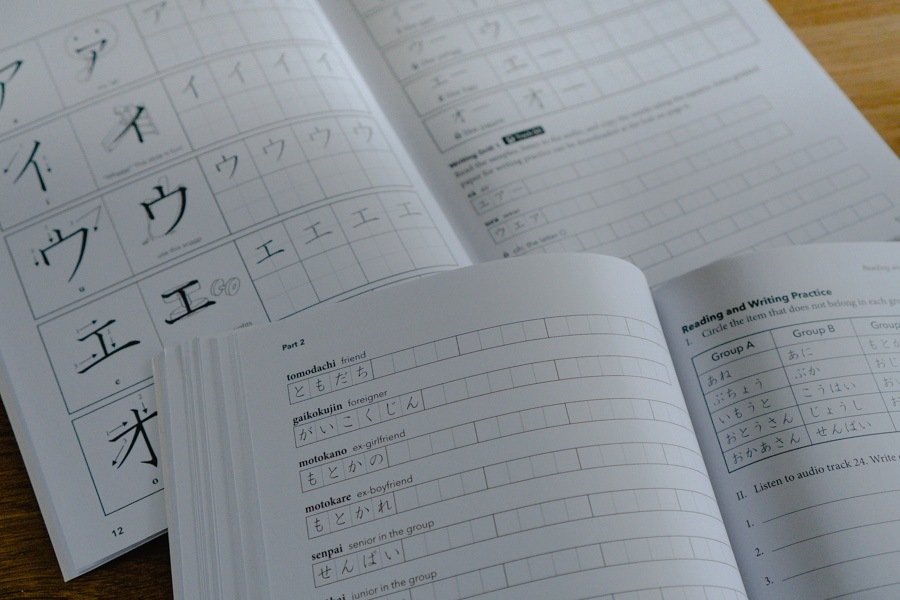 ア ア ア ア ア ア
イ イ イ イ イ イ
ウ ウ ウ ウ ウ ウ
u
エ エ エ エ エ エ
e
オ
o
12
ウー ウ
エー エ
オー オ
Writing Drill 1
エアー
ウエア
oh; the letter O
Part 2
tomodachi friend
ともだち
gaikokujin foreigner
がいこくじん
motokano ex-girlfriend
もとかの
motokare ex-boyfriend
もとかれ
senpai senior in the group
せんぱい
junior in the group
Reading and Writing Practice
I. Circle the item that does not belong in each
Group A Group B Group
あね あに
ぶちょう ぶか
いもうと こうはい
おとうさん じょうし
おかあさん せんぱい
II. Listen to audio track 24. Write
1.
2.
3.